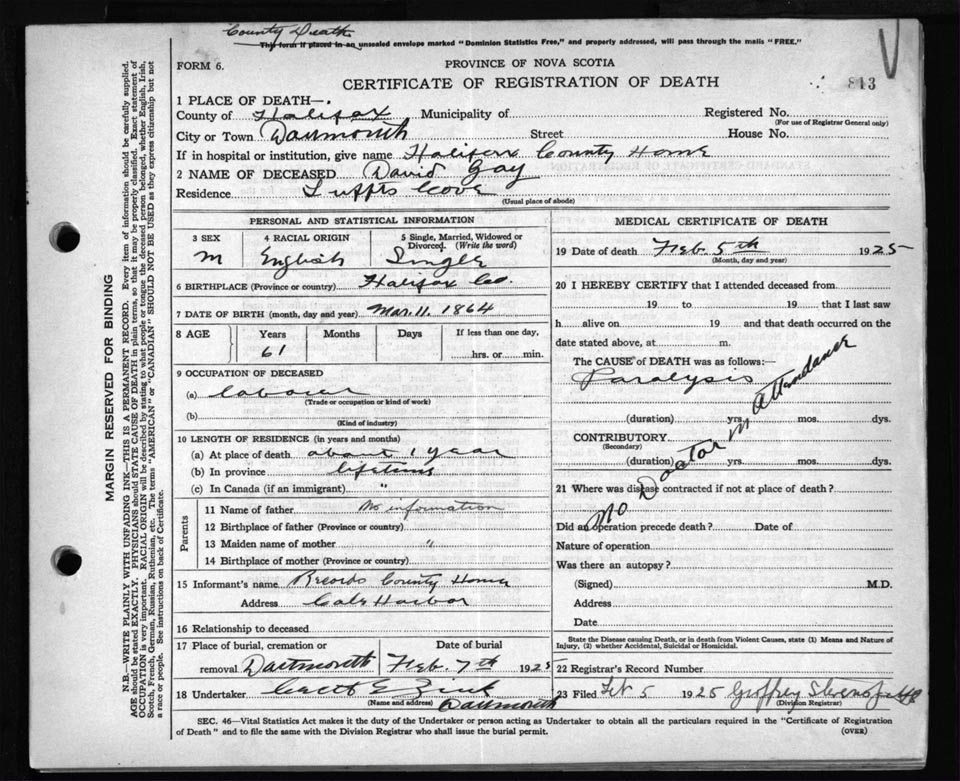 County Death
This form if placed in an unsealed envelope marked "Dominion Statistics Free," and properly addressed, will pass through the mails "FREE."
FORM 6.
PROVINCE OF NOVA SCOTIA
CERTIFICATE OF REGISTRATION OF DEATH
813
1 PLACE OF DEATH—
County of Halifax Municipality of Registered No.
(For use of Registrar General only)
City or Town Dartmouth Street House No.
If in hospital or institution, give name Halifax County Home
2 NAME OF DECEASED David Gay
Residence Tuffts Cove
(Usual place of abode)
PERSONAL AND STATISTICAL INFORMATION
3 SEX 4 RACIAL ORIGIN 5 Single, Married, Widowed or Divorced. (Write the word)
M English Single
6 BIRTHPLACE (Province or country) Halifax Co.
7 DATE OF BIRTH (month, day and year) Mar. 11. 1864
8 AGE Years Months Days If less than one day,
61 hrs. or min.
9 OCCUPATION OF DECEASED
(a) Labourer
(Trade or occupation or kind of work)
(b)
(Kind of industry)
10 LENGTH OF RESIDENCE (in years and months)
(a) At place of death about 1 year
(b) In province lifetime
(c) In Canada (if an immigrant) "
Parents
11 Name of father No information
12 Birthplace of father (Province or country)
13 Maiden name of mother "
14 Birthplace of mother (Province or country)
15 Informant's name Records County Home
Address Cole Harbor
16 Relationship to deceased
17 Place of burial, cremation or Date of burial
removal Dartmouth Feb. 7th 1925
18 Undertaker Zink
(Name and address) Dartmouth
MEDICAL CERTIFICATE OF DEATH
19 Date of death Feb. 5th 1925
(Month, day and year)
20 I HEREBY CERTIFY that I attended deceased from
19 to 19 that I last saw
h alive on 19 and that death occurred on the
date stated above, at m.
The CAUSE of DEATH was as follows:—
Paralysis
(duration) yrs. mos. dys.
CONTRIBUTORY
(Secondary)
(duration) yrs. mos. dys.
No Doctor in Attendance
21 Where was disease contracted if not at place of death?
Did an operation precede death? Date of
Nature of operation
Was there an autopsy?
(Signed) M.D.
Address
Date
State the Disease causing Death, or in death from Violent Causes, state (1) Means and Nature of Injury, (2) whether Accidental, Suicidal or Homicidal.
22 Registrar's Record Number
23 Filed Feb 5 1925 Geoffrey Stevens
(Division Registrar)
SEC. 46—Vital Statistics Act makes it the duty of the Undertaker or person acting as Undertaker to obtain all the particulars required in the "Certificate of Registration
of Death" and to file the same with the Division Registrar who shall issue the burial permit. (OVER)
MARGIN RESERVED FOR BINDING
N.B.—WRITE PLAINLY WITH UNFADING INK—THIS IS A PERMANENT RECORD. Every item of information should be carefully supplied.
AGE should be stated EXACTLY. PHYSICIANS should STATE CAUSE OF DEATH in plain terms, so that it may be properly classified. Exact statement of
OCCUPATION is very important. RACIAL ORIGIN will be described by stating to what people or tongue the deceased person belonged, whether English, Irish,
Scotch, French, German, Russian, Ruthenian, etc. The terms "AMERICAN" or "CANADIAN" SHOULD NOT BE USED as they express citizenship but not
a race or people. See instructions on back of Certificate.